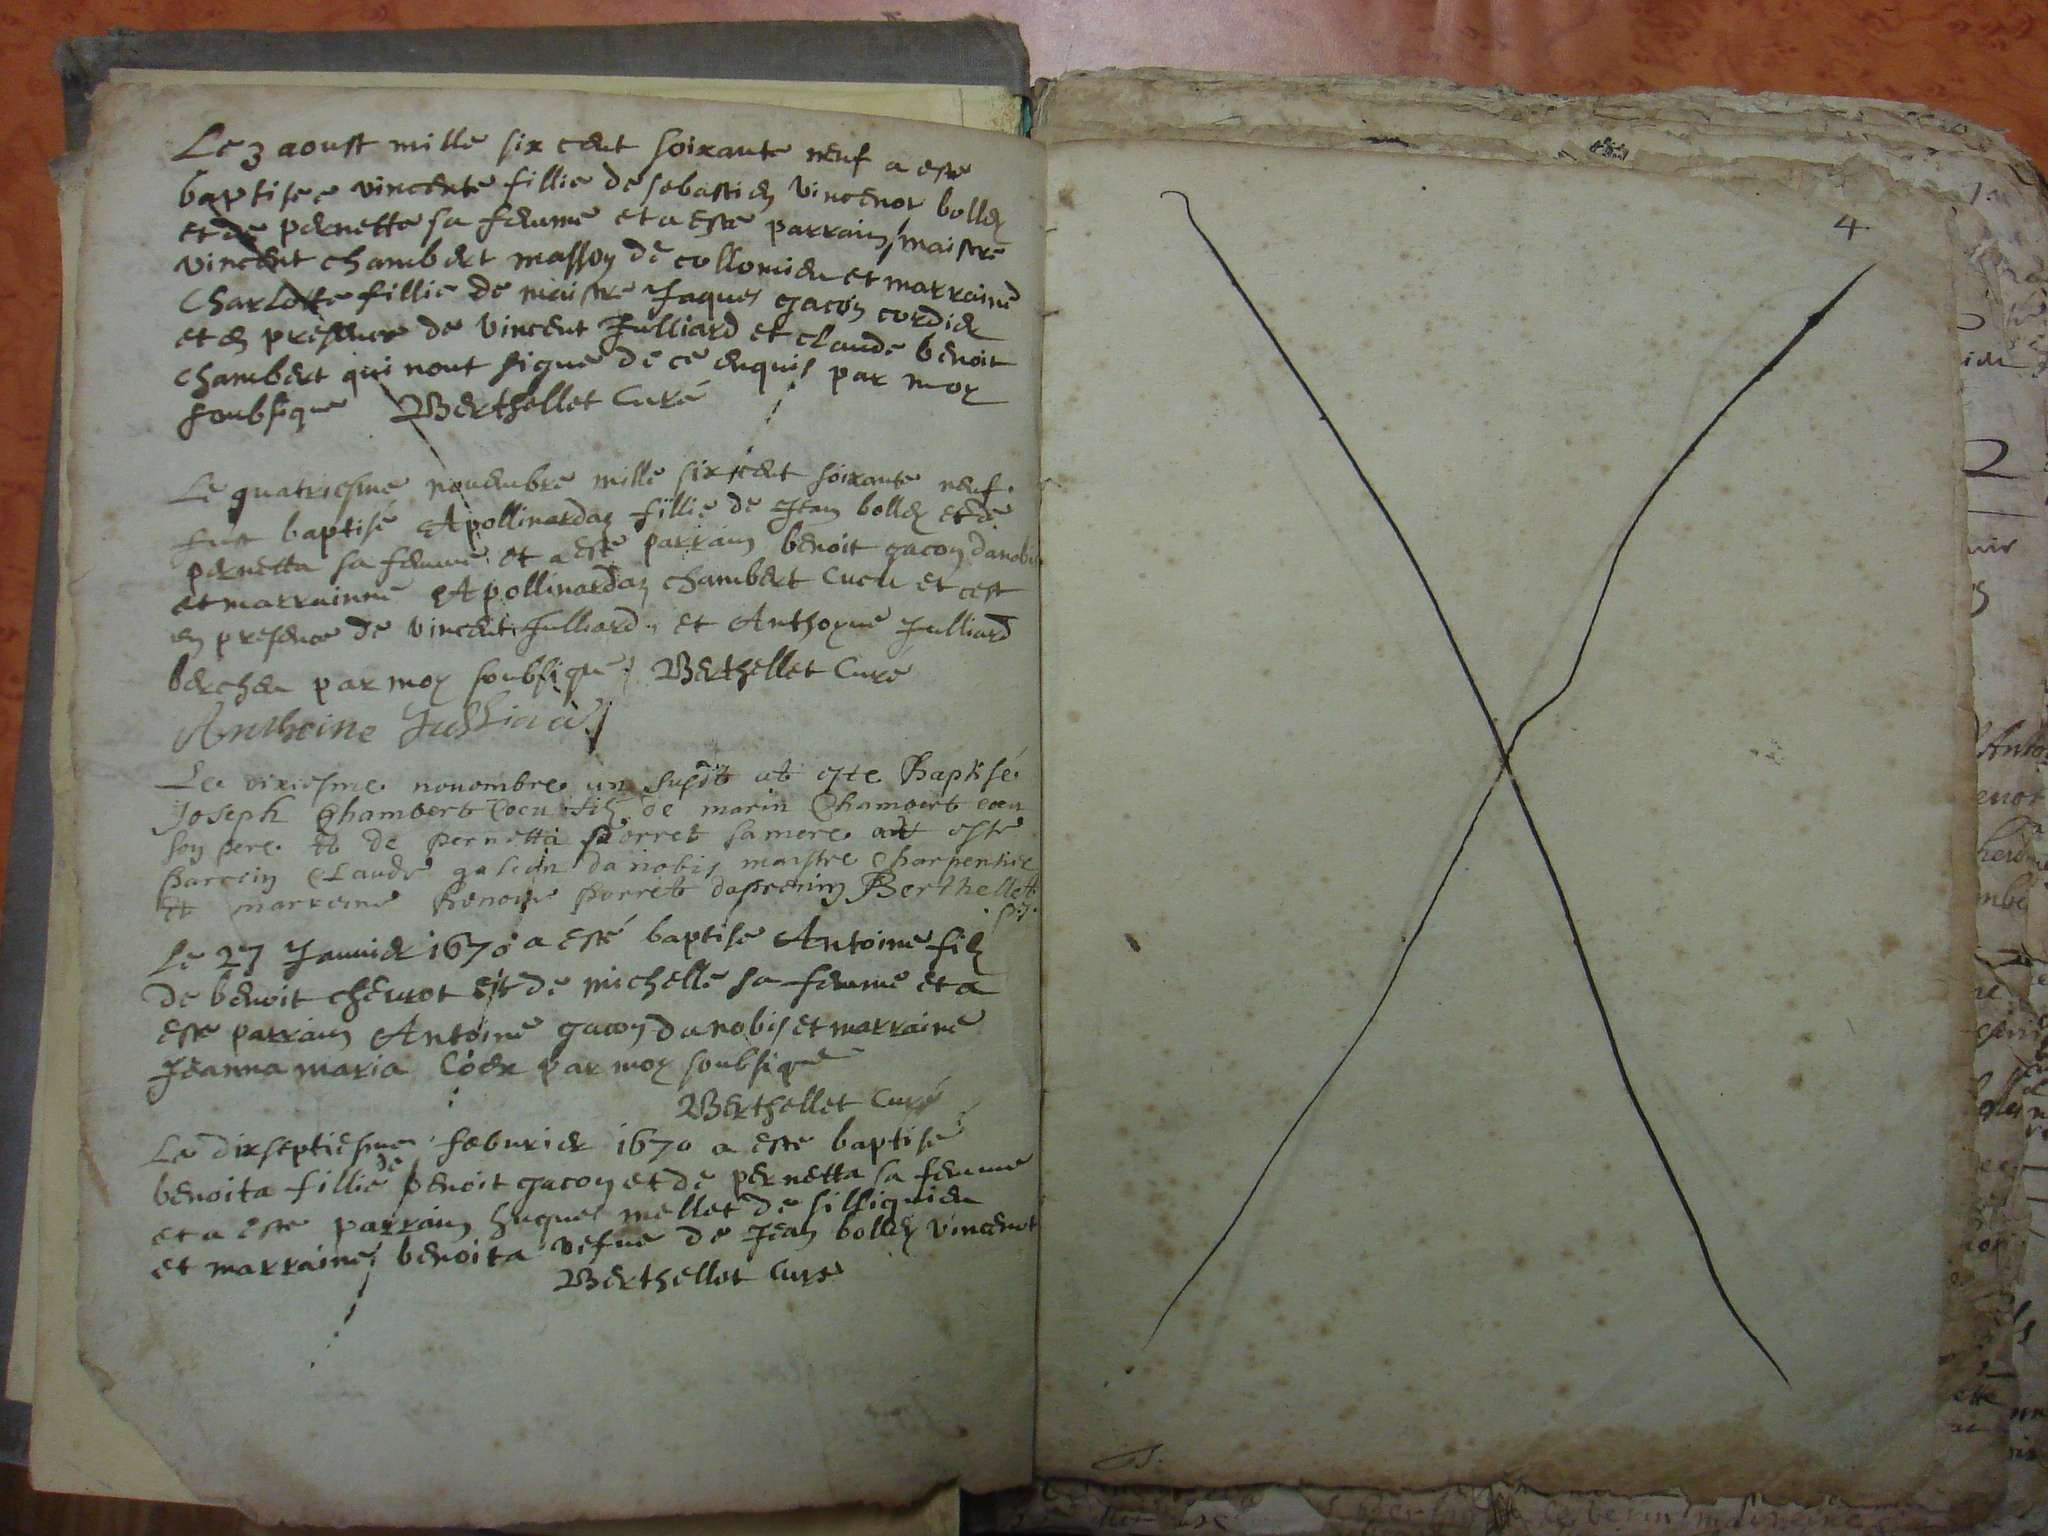 Le 3 aoust mille six cent soixante neuf a este
baptisee vincente fillie de sebastien vincenot bollen
et de pernette sa femme et a este parrain maistre
vincent chambert masson de collomieu et marraine
Charlotte fillie de maistre Jaques gacon cordier
et en presence de vincent Julliard et claude benoit
chambert qui nont signe de ce enquis par moy
soubsigne Berthellet Curé
Le quatriesme novembre mille six cent soixante neuf
fust baptisé Apollinarda fillie de Jean bollen et de
pernetta sa femme et a este parrain benoit gacon danobis
et marrainne Apollinarda chambert Cueu et cest
en presence de vincent Julliard et Anthoyne Julliard
bercheu par moy soubsigne Berthellet Curé
Anthoine Julliard
Le dixiesme novembre an susdit at este Baptisé
Joseph Chambert Coeu filz de marin Chambert coeu
son pere et de pernetta porret sa mere at este
parrein Claude galion danobis maistre charpentie
et marrene Benoite Porret Berthellet
Le 27 Januier 1670 a esté baptise Antoine filz
de benoit cheurot et de michelle sa femme et a
este parrain Antoine gacon danobis et marraine
Jeanna maria par moy soubsigne
Berthellet Curé
Le dixseptiesme feburier 1670 a este baptisé
de
benoita fillie benoit gacon et de pernetta sa femme
et a este parrain huques mellet de silliquieu
et marraine benoita vefue de Jean bollen vincenot
Berthellet Curé
4